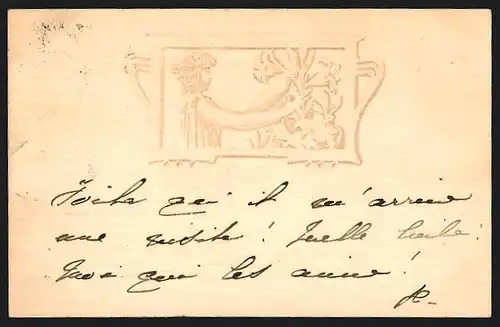 Voilà qu'il m'arrive
une visite! Quelle tuile!
Moi qui les aime!
P.